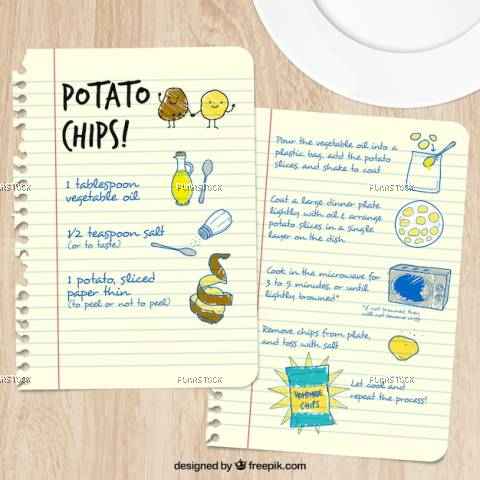 POTATO
CHIPS!
1 tablespoon
vegetable oil
1/2 teaspoon salt
(or to taste)
1 potato, sliced
paper thin
(to peel or not to peel)
Pour the vegetable oil into a
plastic bag, add the potato
slices, and shake to coat
Coat a large dinner plate
lightly with oil & arrange
potato slices in a single
layer on the dish.
Cook in the microwave for
3 to 5 minutes, or until
lightly browned*
*if not browned, they
will not become crispy
Remove chips from plate,
and toss with salt
CHIPS
Let cool and
repeat the process!
FUNRSTOCK
FUNRSTOCK
FUNRSTOCK
FUNRSTOCK
FUNRSTOCK
FUNRSTOCK
designed by freepik.com